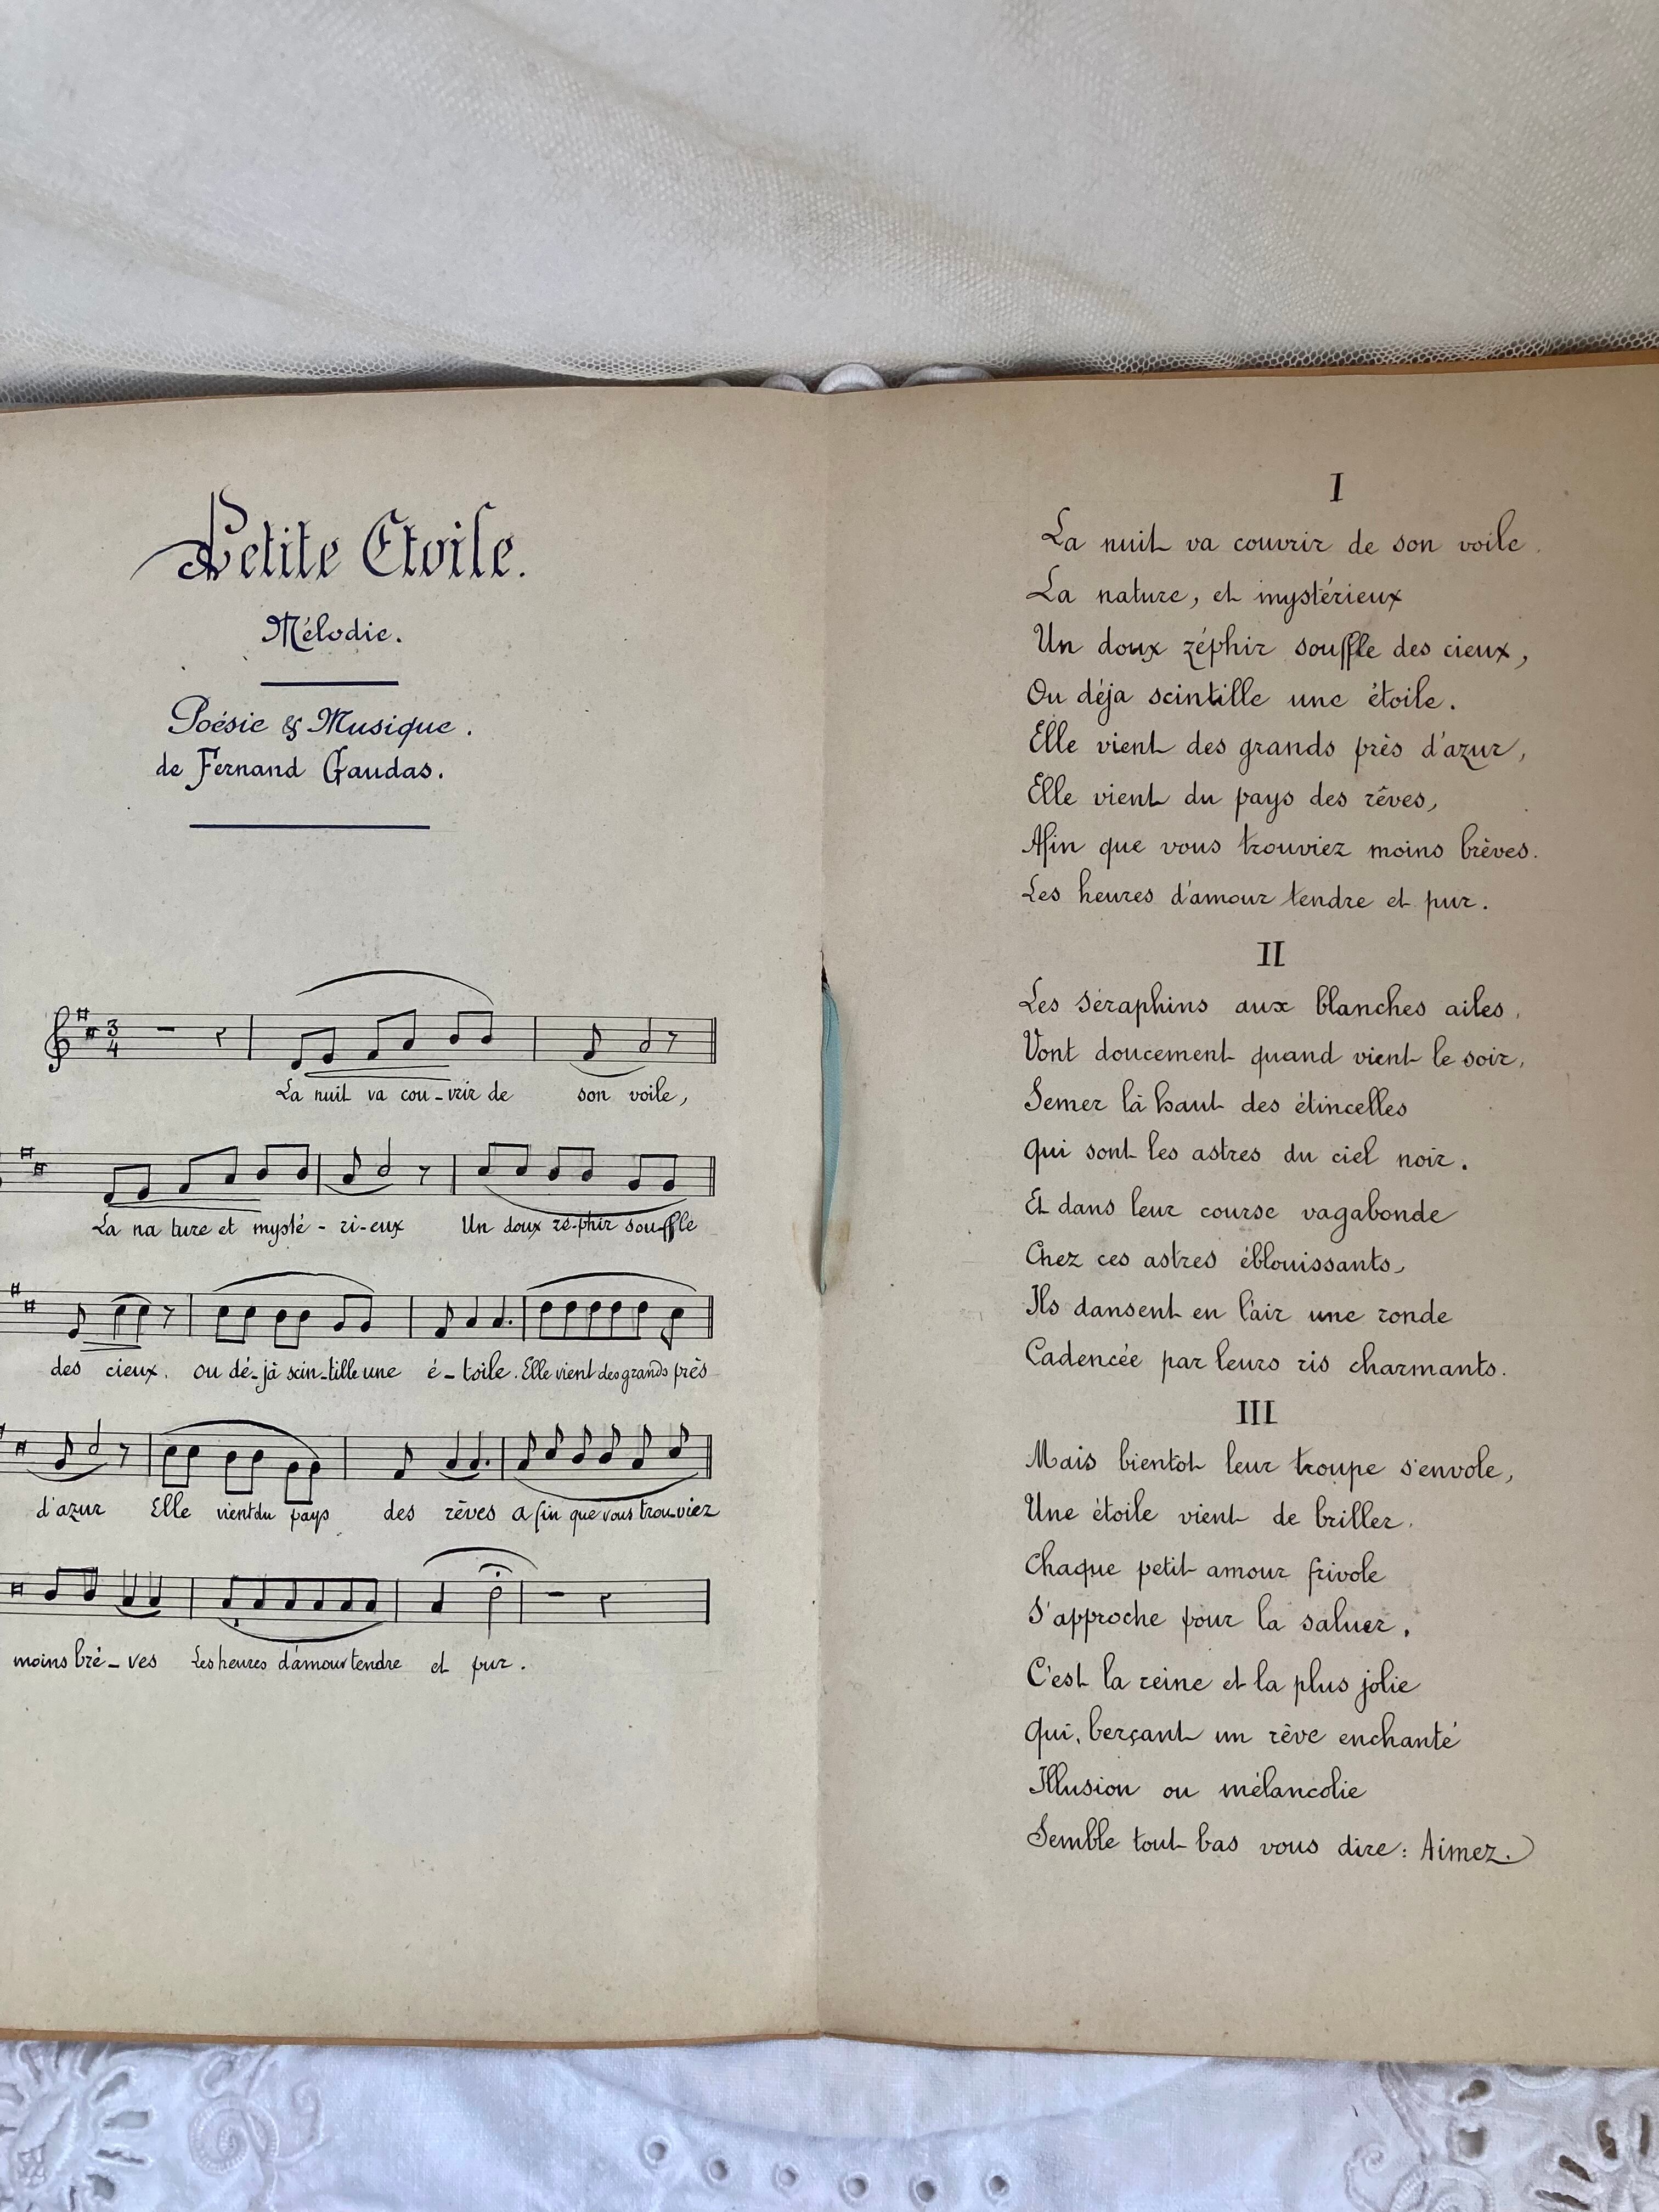 Petite Etoile.
Mélodie.
Poésie & Musique.
de Fernand Gaudas.
3
4
La nuit va cou-vrir de son voile,
La na ture et mysté - ri-eux Un doux zé-phir souffle
des cieux. ou dé-jà scin-tille une é-toile. Elle vient des grands près
d'azur Elle vient du pays des rêves a fin que vous trou-viez
moins brè-ves Les heures d'amour tendre et pur.
I
La nuit va couvrir de son voile.
La nature, et mystérieux
Un doux zéphir souffle des cieux,
Ou déja scintille une étoile.
Elle vient des grands près d'azur,
Elle vient du pays des rêves,
Afin que vous trouviez moins brèves.
Les heures d'amour tendre et pur.
II
Les séraphins aux blanches ailes,
Vont doucement quand vient le soir,
Semer là haut des étincelles
qui sont les astres du ciel noir.
Et dans leur course vagabonde
Chez ces astres éblouissants,
Ils dansent en l'air une ronde
Cadencée par leurs ris charmants.
III
Mais bientot leur troupe s'envole,
Une étoile vient de briller.
Chaque petit amour frivole
S'approche pour la saluer.
C'est la reine et la plus jolie
qui, berçant un rêve enchanté
Illusion ou mélancolie
Semble tout bas vous dire: Aimez.